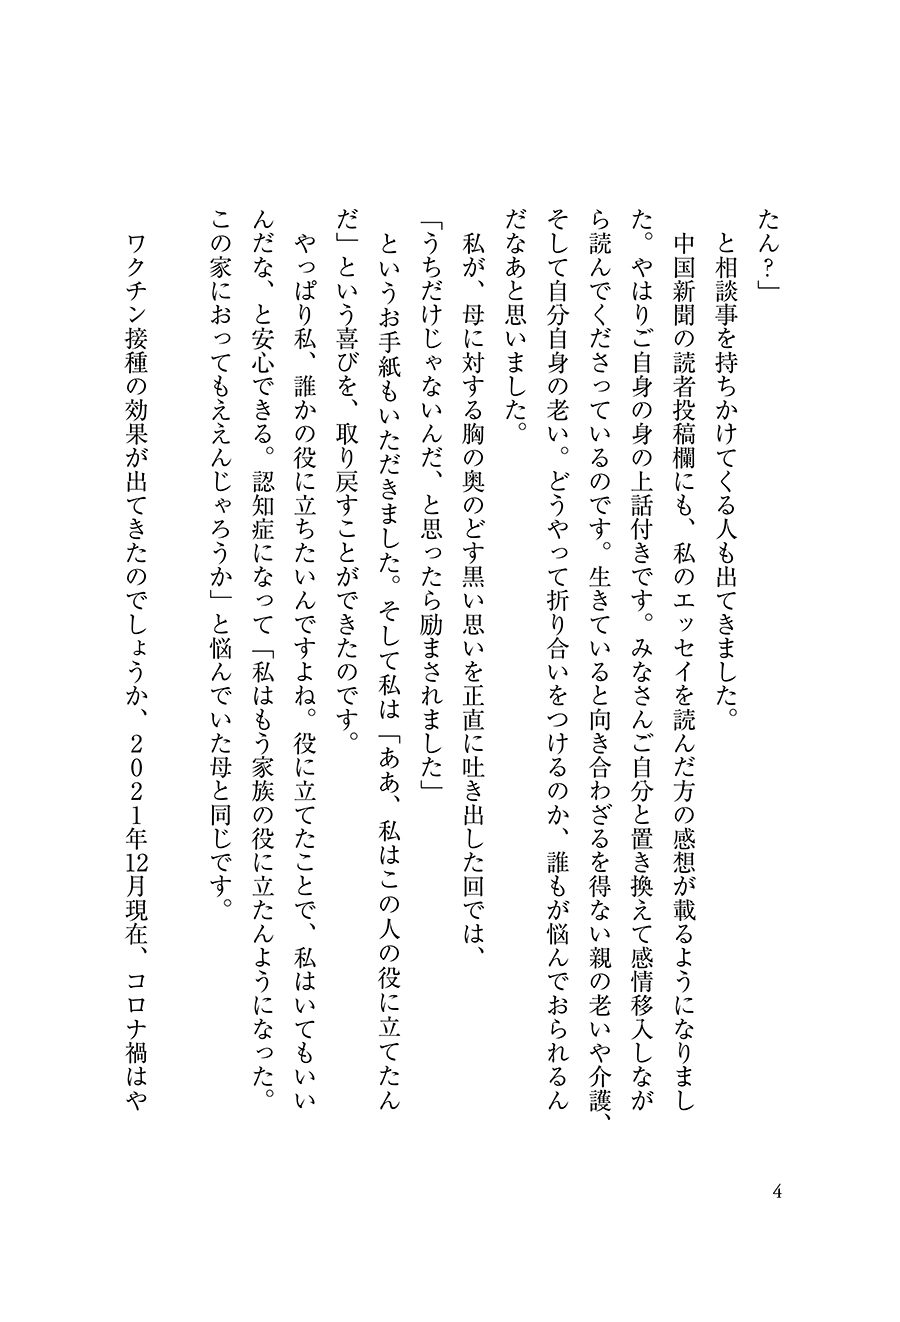 たん？」
と相談事を持ちかけてくる人も出てきました。
中国新聞の読者投稿欄にも、私のエッセイを読んだ方の感想が載るようになりまし
た。やはりご自身の身の上話付きです。みなさんご自分と置き換えて感情移入しなが
ら読んでくださっているのです。生きていると向き合わざるを得ない親の老いや介護、
そして自分自身の老い。どうやって折り合いをつけるのか、誰もが悩んでおられるん
だなあと思いました。
私が、母に対する胸の奥のどす黒い思いを正直に吐き出した回では、
「うちだけじゃないんだ、と思ったら励まされました」
というお手紙もいただきました。そして私は「ああ、私はこの人の役に立てたん
だ」という喜びを、取り戻すことができたのです。
やっぱり私、誰かの役に立ちたいんですよね。役に立てたことで、私はいてもいい
んだな、と安心できる。認知症になって「私はもう家族の役に立たんようになった。
この家におってもええんじゃろうか」と悩んでいた母と同じです。
ワクチン接種の効果が出てきたのでしょうか、2021年12月現在、コロナ禍はや
4